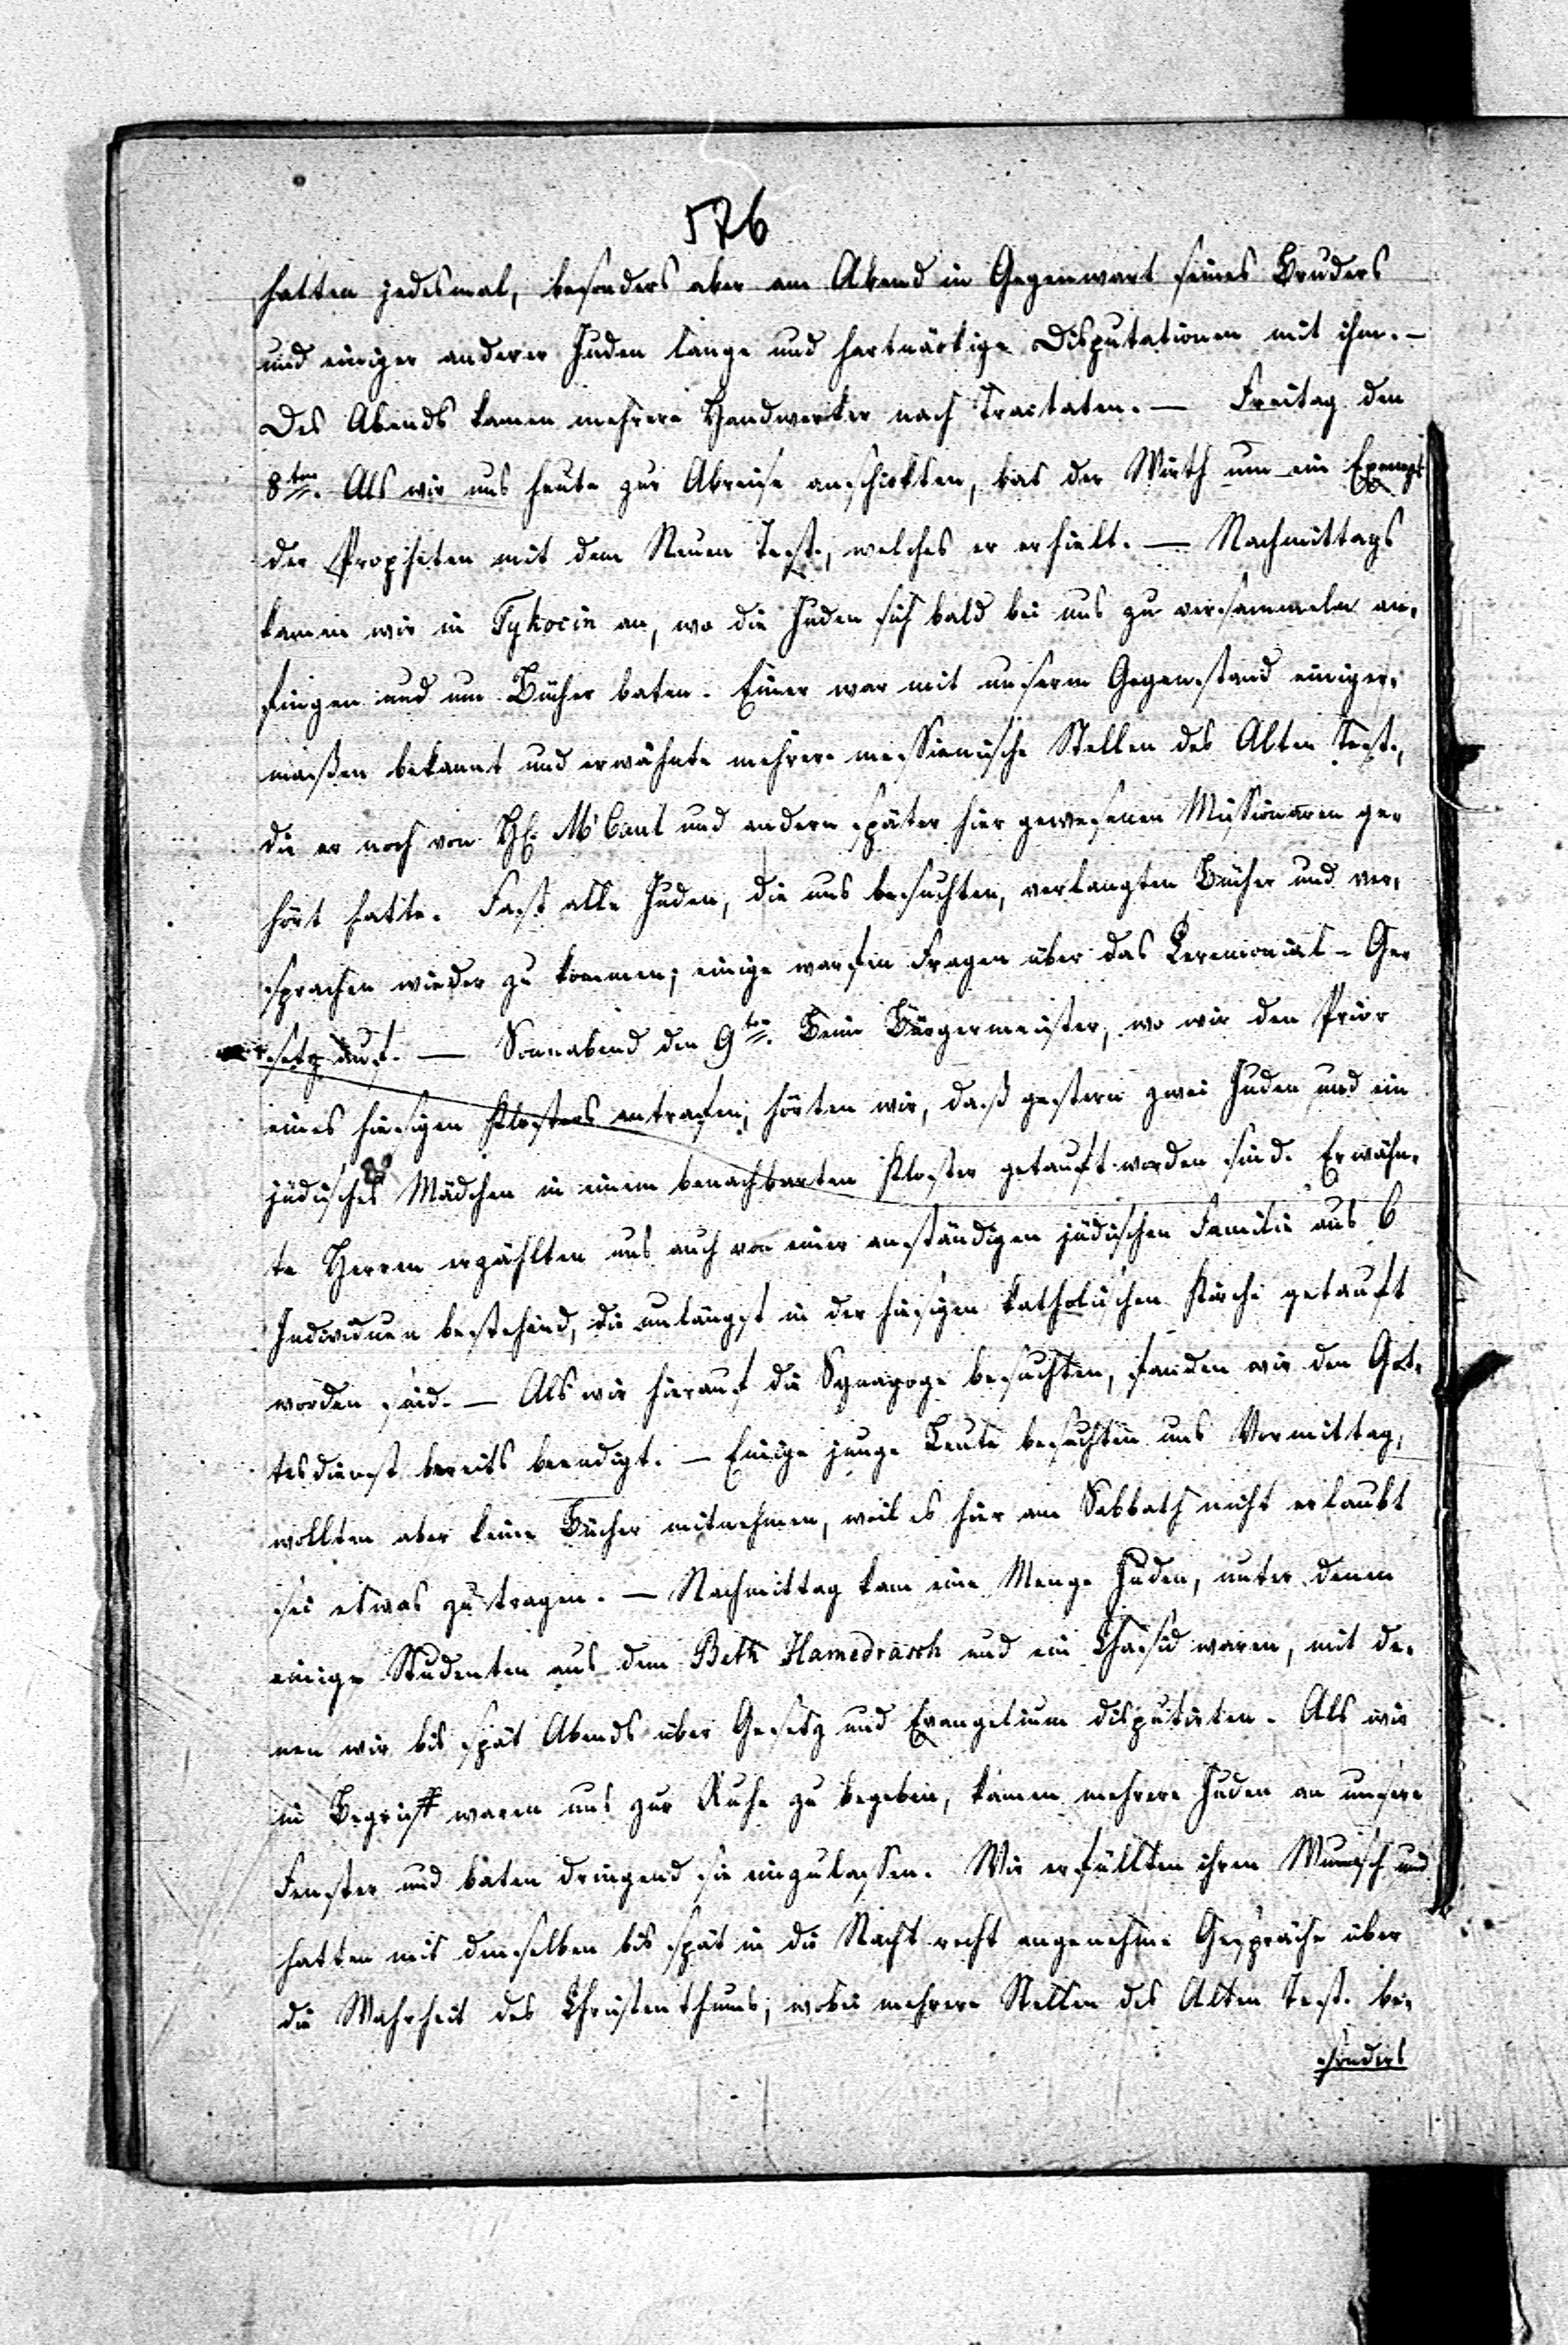 576
hatten jedesmal, besonders aber am Abend in Gegenwart seines Bruders
und einiger anderer Juden lange und hartnäckige Disputationen mit ihm. —
Des Abends kamen mehrere Handwerker nach Tractaten. — Freitag den
8ten. Als wir uns heute zur Abreise anschickten, bat der Wirth um ein Exempl
der Propheten mit dem Neuen Test., welches er erhielt. — Nachmittags
kamen wir in Tykocin an, wo die Juden sich bald bei uns zu versammeln an-
fingen und um Bücher baten. Einer war mit unserm Gegenstand einiger-
maßen bekannt und erwähnte mehrere messianische Stellen des Alten Test.,
die er noch von H. McCaul und andern später hier gewesenen Missionaren ge-
hört hatte. Fast alle Juden, die uns besuchten, verlangten Bücher und ver-
sprachen wieder zu kommen; einige warfen Fragen über das Ceremonial-Ge-
setz auf. — Sonnabend den 9ten. Beim Bürgermeister, wo wir den Prior
eines hiesigen Klosters antrafen, hörten wir, daß gestern zwei Juden und ein
jüdisches Mädchen in einem benachbarten Kloster getauft worden sind. Erwähn-
te Herren erzählten uns auch von einer anständigen jüdischen Familie aus 6
Individuen bestehend, die unlängst in der hiesigen katholischen Kirche getauft
worden seid. — Als wir hierauf die Synagoge besuchten, fanden wir den Got-
tesdienst bereits beendigt. — Einige junge Leute besuchten uns Vormittag,
wollten aber keine Bücher mitnehmen, weil es hier am Sabbath nicht erlaubt
sei etwas zu tragen. — Nachmittag kam eine Menge Juden, unter denen
einige Studenten aus dem Beth Hamedrasch und ein Chasid waren, mit de-
nen wir bis spät Abends über Gesetz und Evangelium disputirten. Als wir
in Begriff waren uns zur Ruhe zu begeben, kamen mehrere Juden an unsere
Fenster und baten dringend sie einzulassen. Wir erfüllten ihren Wunsch und
hatten mit denselben bis spät in die Nacht recht angenehme Gespräche über
die Wahrheit des Christenthums, wobei mehrere Stellen des Alten Test. be-
sonders